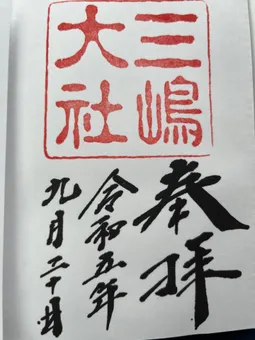 三嶋
大社
奉拝
令和五年
九月二十日